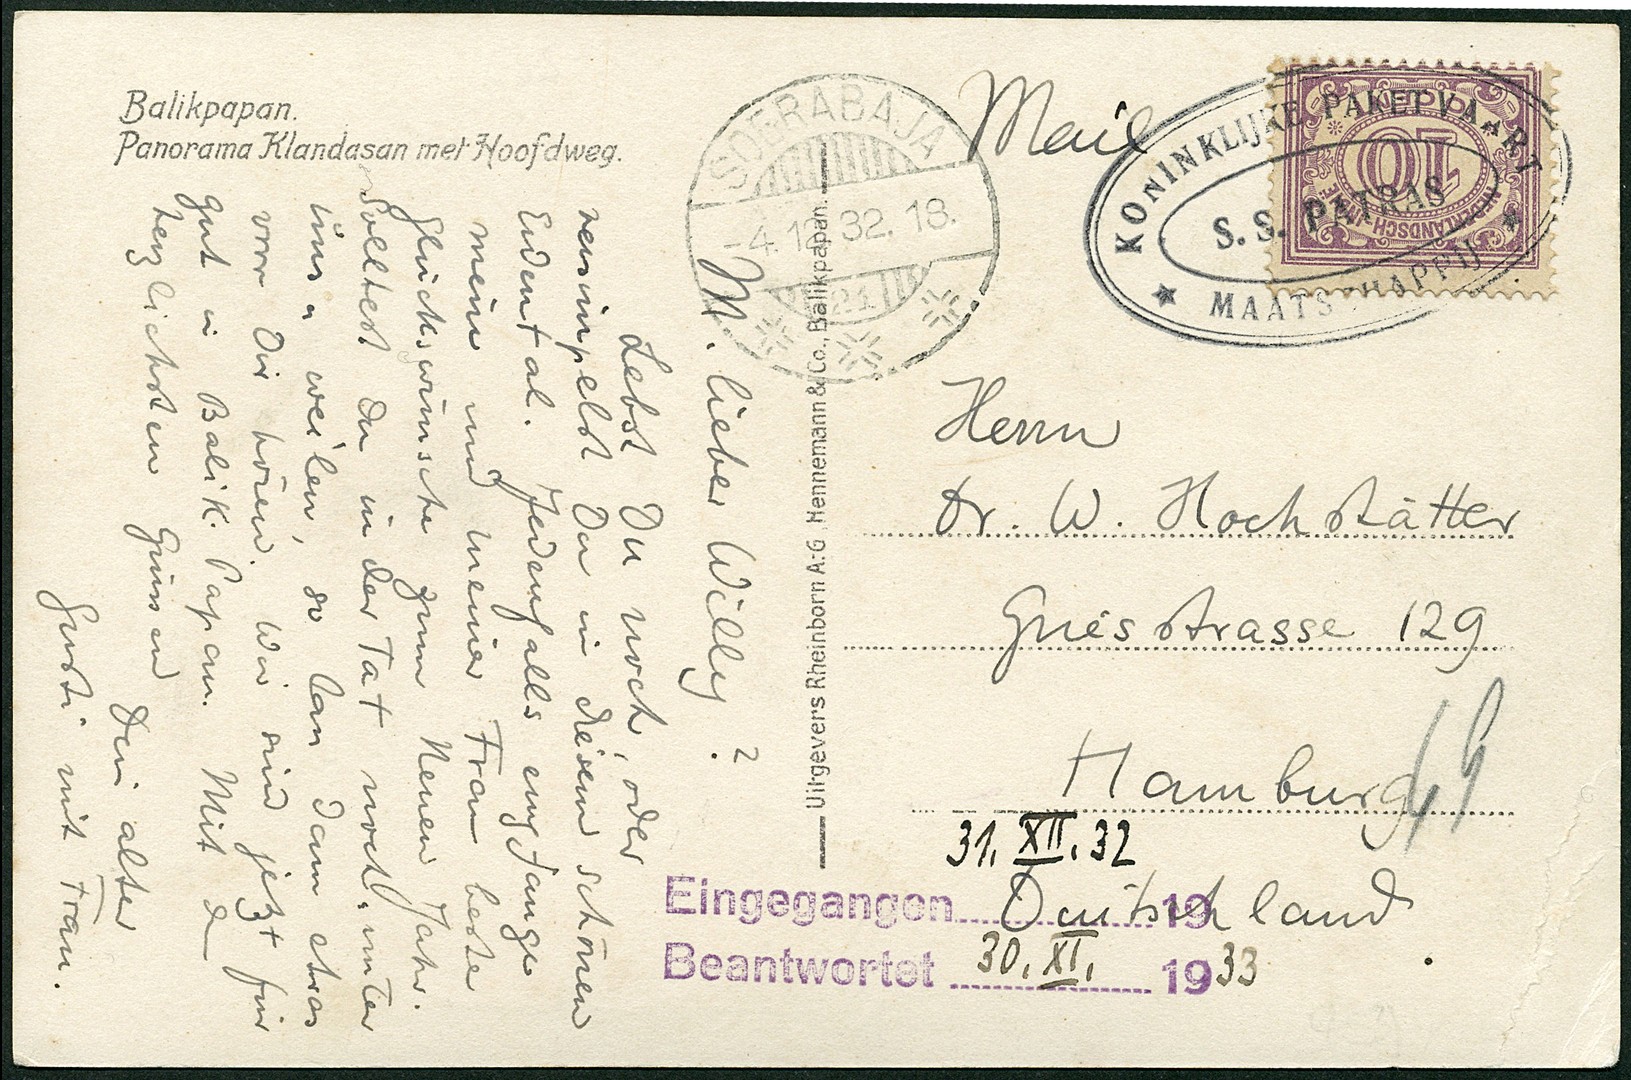 Balikpapan.
Panorama Klandasan met Hoofdweg.
M. lieber Willy!
Lebst Du noch, oder
versimpelst Du in diesem schönen
Erdental. Jedenfalls empfange
meine und meiner Frau beste
Glückwünsche zum Neuen Jahr.
Solltest Du in der Tat noch unter
uns weilen, so lan dann etwas
von Dir hören. Wir sind jetzt für
gut in Balik Papan. Mit d
herzlichsten Grüssen
Dein alter
Gusti mit Frau.
Uitgevers Rheinborn A.G. Hennemann & Co., Balikpapan.
SOERABAJA
-4.12.32.18.
21
Mail
KONINKLIJKE PAKETVAART
MAATSCHAPPIJ
S.S. PATRAS
10
NEDERLANDSCH
Herrn
Dr. W. Hochstätter
Griesstrasse 129
Hamburg
Deutschland
31. XII. 32
Eingegangen 19
Beantwortet 30. XI. 1933